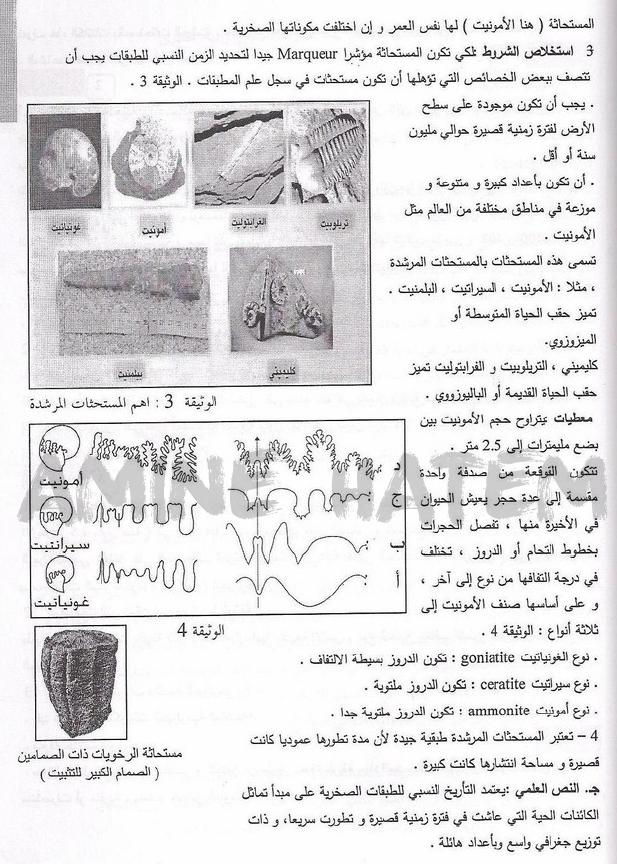 المستحاثة ( هنا الأمونيت ) لها نفس العمر و إن اختلفت مكوناتها الصخرية .
3 استخلاص الشروط :لكي تكون المستحاثة مؤشرا Marqueur جيدا لتحديد الزمن النسبي للطبقات يجب أن
تتصف ببعض الخصائص التي تؤهلها أن تكون مستحثات في سجل علم المطبقات . الوثيقة 3 .
. يجب أن تكون موجودة على سطح
الأرض لفترة زمنية قصيرة حوالي مليون
سنة أو أقل .
. أن تكون بأعداد كبيرة و متنوعة و
موزعة في مناطق مختلفة من العالم مثل
الأمونيت .
تسمى هذه المستحثات بالمستحثات المرشدة
، مثلا : الأمونيت ، السيراتيت ، البلمنيت .
تميز حقب الحياة المتوسطة أو
الميزوزوي.
كليميني ، التريلوبيت و الغرابتوليت تميز
حقب الحياة القديمة أو الباليوزووي .
تريلوبيت
الغرابتوليت
أمونيت
غونياتيت
كليميني
بيلمنيت
الوثيقة 3 : اهم المستحثات المرشدة
معطيات يتراوح حجم الأمونيت بين
بضع مليمترات إلى 2.5 متر .
تتكون القوقعة من صدفة واحدة
مقسمة إلى عدة حجر يعيش الحيوان
في الأخيرة منها ، تفصل الحجرات
بخطوط التحام أو الدروز ، تختلف
في درجة التفافها من نوع إلى آخر ،
و على أساسها صنف الأمونيت إلى
ثلاثة أنواع : الوثيقة 4 .
د
ج
ب
أ
أمونيت
سيراتيت
غونياتيت
AMINE HATEM
الوثيقة 4
. نوع الغونياتيت goniatite : تكون الدروز بسيطة الالتفاف .
. نوع سيراتيت ceratite : تكون الدروز ملتوية .
. نوع أمونيت ammonite : تكون الدروز ملتوية جدا .
4 – تعتبر المستحثات المرشدة طبقية جيدة لأن مدة تطورها عموديا كانت
قصيرة و مساحة انتشارها كانت كبيرة .
مستحاثة الرخويات ذات الصمامين
( الصمام الكبير للتثبيت )
جـ. النص العلمي :يعتمد التأريخ النسبي للطبقات الصخرية على مبدأ تماثل
الكائنات الحية التي عاشت في فترة زمنية قصيرة و تطورت سريعا، و ذات
توزيع جغرافي واسع وبأعداد هائلة .